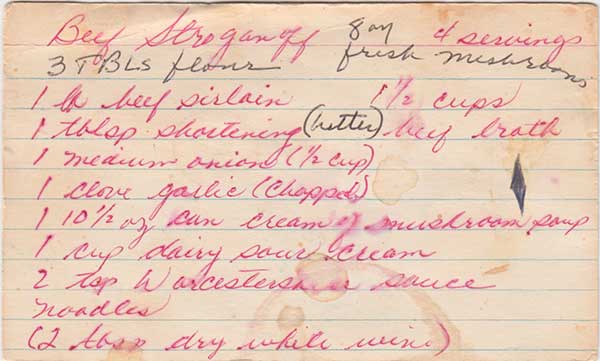 Beef Stroganoff 8 oz 4 servings
3 TBLS flour fresh mushrooms
1 lb beef sirloin 1 1/2 cups
1 tblsp shortening (butter) beef broth
1 medium onion (1/2 cup)
1 clove garlic (chopped)
1 10 1/2 oz can cream of mushroom soup
1 cup dairy sour cream
2 tsp Worcestershire sauce
noodles
(2 tbsp dry white wine)